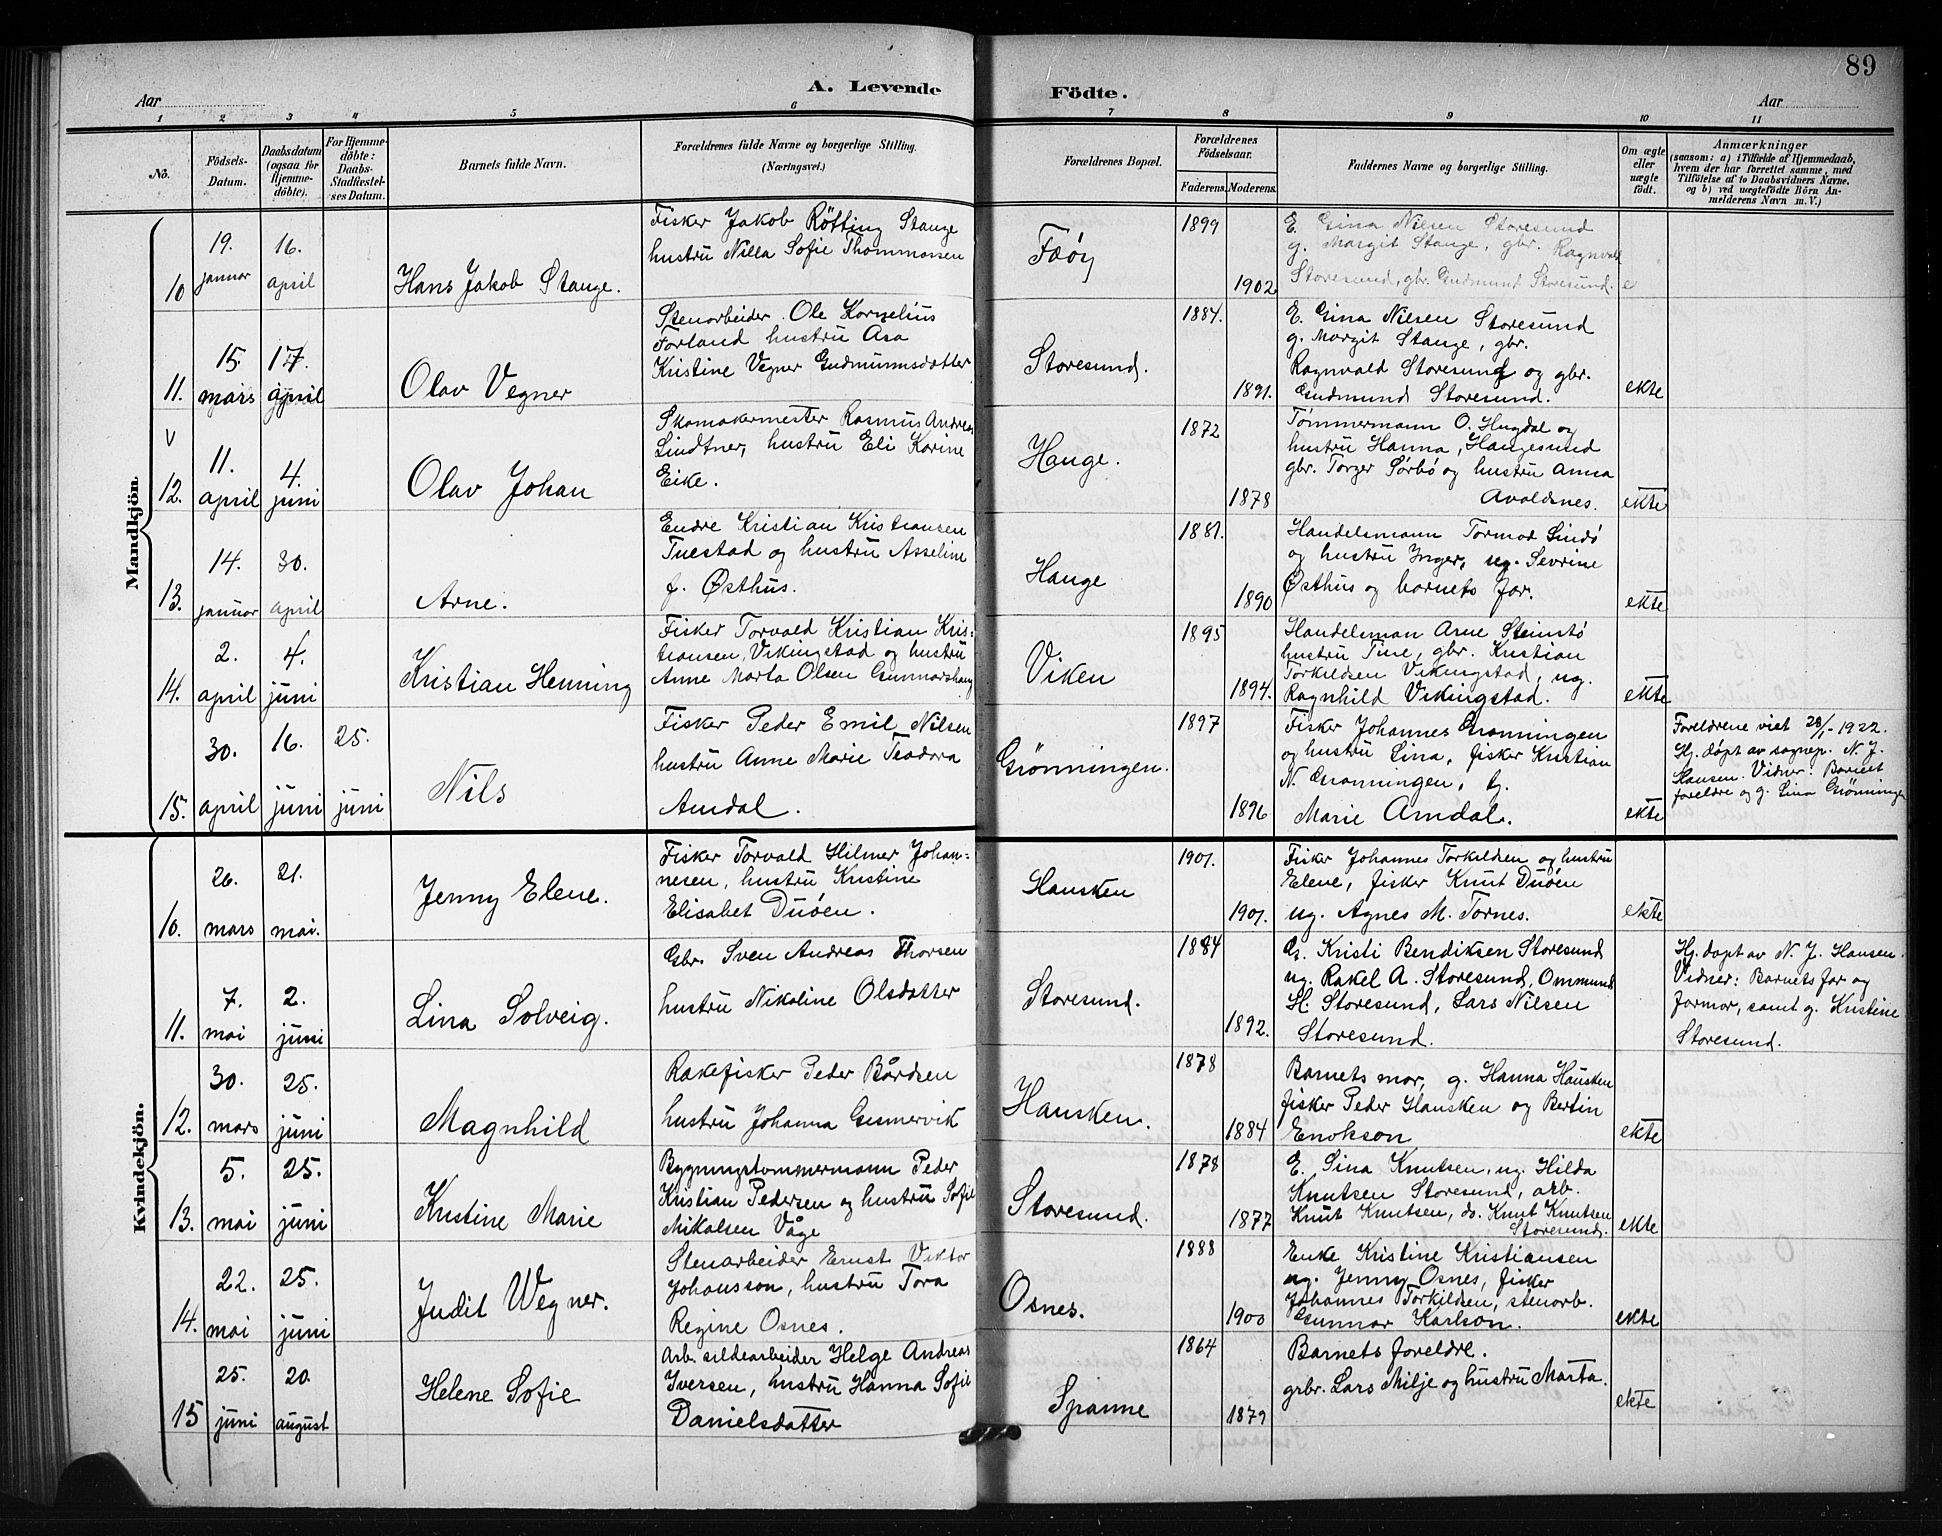 89
A. Levende Födte.
Aar
Aar
1 2 3 4 5 6 7 8 9 10 11
No.
Födsels-Datum.
Daabsdatum (ogsaa for Hjemme-döbte).
For Hjemme-döbte: Daabs-Stadfæstel-ses Datum.
Barnets fulde Navn.
Forældrenes fulde Navne og borgerlige Stilling. (Næringsvei.)
Forældrenes Bopæl.
Forældrenes Födselsaar.
Faderens. Moderens.
Faddernes Navne og borgerlige Stilling.
Om ægte eller uægte födt.
Anmærkninger
(saasom: a) i Tilfælde af Hjemmedaab,
hvem der har forrettet samme, med
Tilföielse af to Daabsvidners Navne.
og b) ved uegtefödte Börn An-
melderens Navn m. V.)
Mandkjön.
10 19. januar 16. april
Hans Jakob Stange.
Fisker Jakob Rötting Stange
hustru Nilla Sofie Thommassen
Fæöy
1899
1902
E. Gina Nilsen Storesund
g. Margit Stange, gbr. Ragnvald
Storesund, gbr. Gudmund Storesund.
e
11. 15. mars 17. april
Olav Vegner
Stenarbeider Ole Kornelius
Forland hustru Asa
Kristine Vegner Gudmunnsdatter
Storesund.
1884.
1891.
E. Gina Nilsen Storesund
g. Margit Stange, gbr.
Ragnvald Storesund og gbr.
Gudmund Storesund.
ekte
v
12. 11. april 4. juni
Olav Johan
Skomakermester Rasmus Andreas
Lindtner, hustru Eli Karine
Eike.
Hauge.
1872
1878
Tømmermann O. Hugdal og
hustru Hanna, Haugesund
gbr. Torger Sørbø og hustru Anna
Avaldsnes.
ekte
13. 14. januar 30. april
Arne.
Endre Kristian Kristiansen
Tuestad og hustru Asseline
f. Østhus.
Hauge
1881.
1890
Handelsmann Tormod Lindø
og hustru Inger, ug. Sevrine
Østhus og barnets far.
ekte
14. 2. april 4. juni
Kristian Henning
Fisker Torvald Kristian Kris-
tiansen, Vikingstad og hustru
Anne Marta Olsen Gunnarshaug
Viken
1895
1894.
Handelsman Arne Steinstø
hustru Tine, gbr. Kristian
Torkildsen Vikingstad, ug.
Ragnhild Vikingstad.
ekte
15. 30. april 16. juni 25. juni
Nils
Fisker Peder Emil Nilsen
hustru Anne Marie Teodora
Amdal.
Grønningen.
1897
1896
Fisker Johannes Grønningen
og hustru Lina, fisker Kristian
N. Grønningen,
Marie Amdal.
ekte
Foreldrene viet 28/1-1922.
Hj. døpt av sognepr. N. J.
Hansen. Vidner: Barnets
foreldre og g. Lina Grønningen
Kvindekjön.
10. 26. mars 21. mai.
Jenny Elene.
Fisker Torvald Hilmer Johan-
nesen, hustru Kristine
Elisabet Duöen.
Hausken
1901.
1901.
Fisker Johannes Torkildsen og hustru
Elene, fisker Knut Duöen
ug. Agnes M. Tornes.
ekte
11. 7. mai 2. juni
Lina Solveig.
Gbr. Sven Andreas Thorsen
hustru Nikoline Olsdatter
Storesund.
1884
1892.
G. Kristi Bendiksen Storesund
ug. Rakel A. Storesund, Ommund
H. Storesund, Lars Nilsen
Storesund.
Hj. døpt av N. J. Hansen.
Vidner: Barnets far og
farmor, samt g. Kristine
Storesund.
12. 30. mars 25. juni
Magnhild
Rakefisker Peder Bårdsen
hustru Johanna Gismervik
Hausken.
1878
1884
Barnets mor, g. Hanna Hausken
fisker Peder Hausken og Bertin
Enokson
ekte
13. 5. mai 25. juni
Kristine Marie
Bygningstømmermann Peder
Kristian Pedersen og hustru Sofie
Mikalsen Våge
Storesund.
1878
1877
E. Sina Knutsen, ug. Hilda
Knutsen Storesund, arb.
Knut Knutsen, do. Knut Knutsen
Storesund.
ekte
14. 22. mai 25. juni
Judit Wegner.
Stenarbeider Ernst Viktor
Johansson, hustru Tora
Regine Osnes.
Osnes.
1888
1900
Enke Kristine Kristiansen
ug. Jenny Osnes, fisker
Johannes Torkildsen, stenarb.
Gunnar Karlson.
ekte
15 25. juni 20. august
Helene Sofie
Arb. sildearbeider Helge Andreas
Iversen, hustru Hanna Sofie
Danielsdatter
Spanne
1864
1879
Barnets foreldre.
grbr. Lars Milje og hustru Marta.
ekte